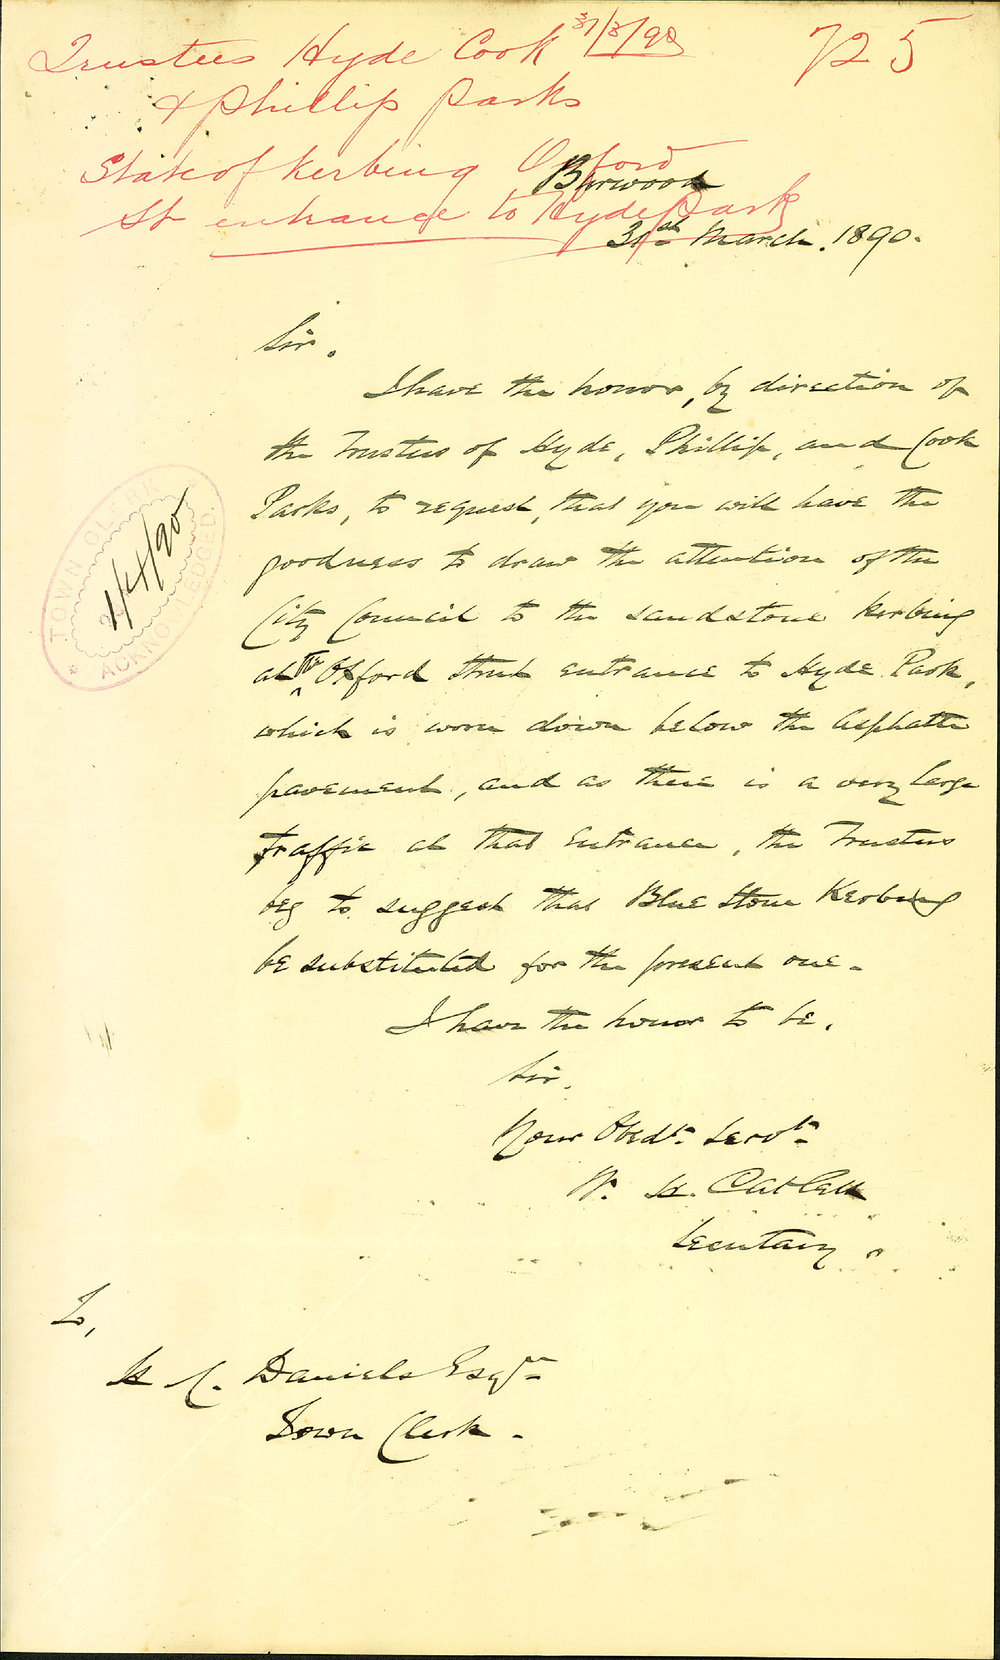 Trustees Hyde Cook 31/3/90
& Phillip Parks
725
State of kerbing Oxford
St entrance to Hyde Park
Burwood
31st March. 1890.
Sir.
I have the honor, by direction of
the Trustees of Hyde, Phillip, and Cook
Parks, to request, that you will have the
goodness to draw the attention of the
City Council to the sandstone kerbing
at the Oxford Street entrance to Hyde Park,
which is worn down below the Asphalte
pavement, and as there is a very large
traffic at that Entrance, the Trustees
beg to suggest that Blue Stone Kerbing
be substituted for the present one.
I have the honor to be.
Sir.
Your Obedt. Servt.
W. H. Catlett
Secretary.
TOWN CLERK
1/4/90
ACKNOWLEDGED.
To,
H C. Daniels Esqre
Town Clerk.